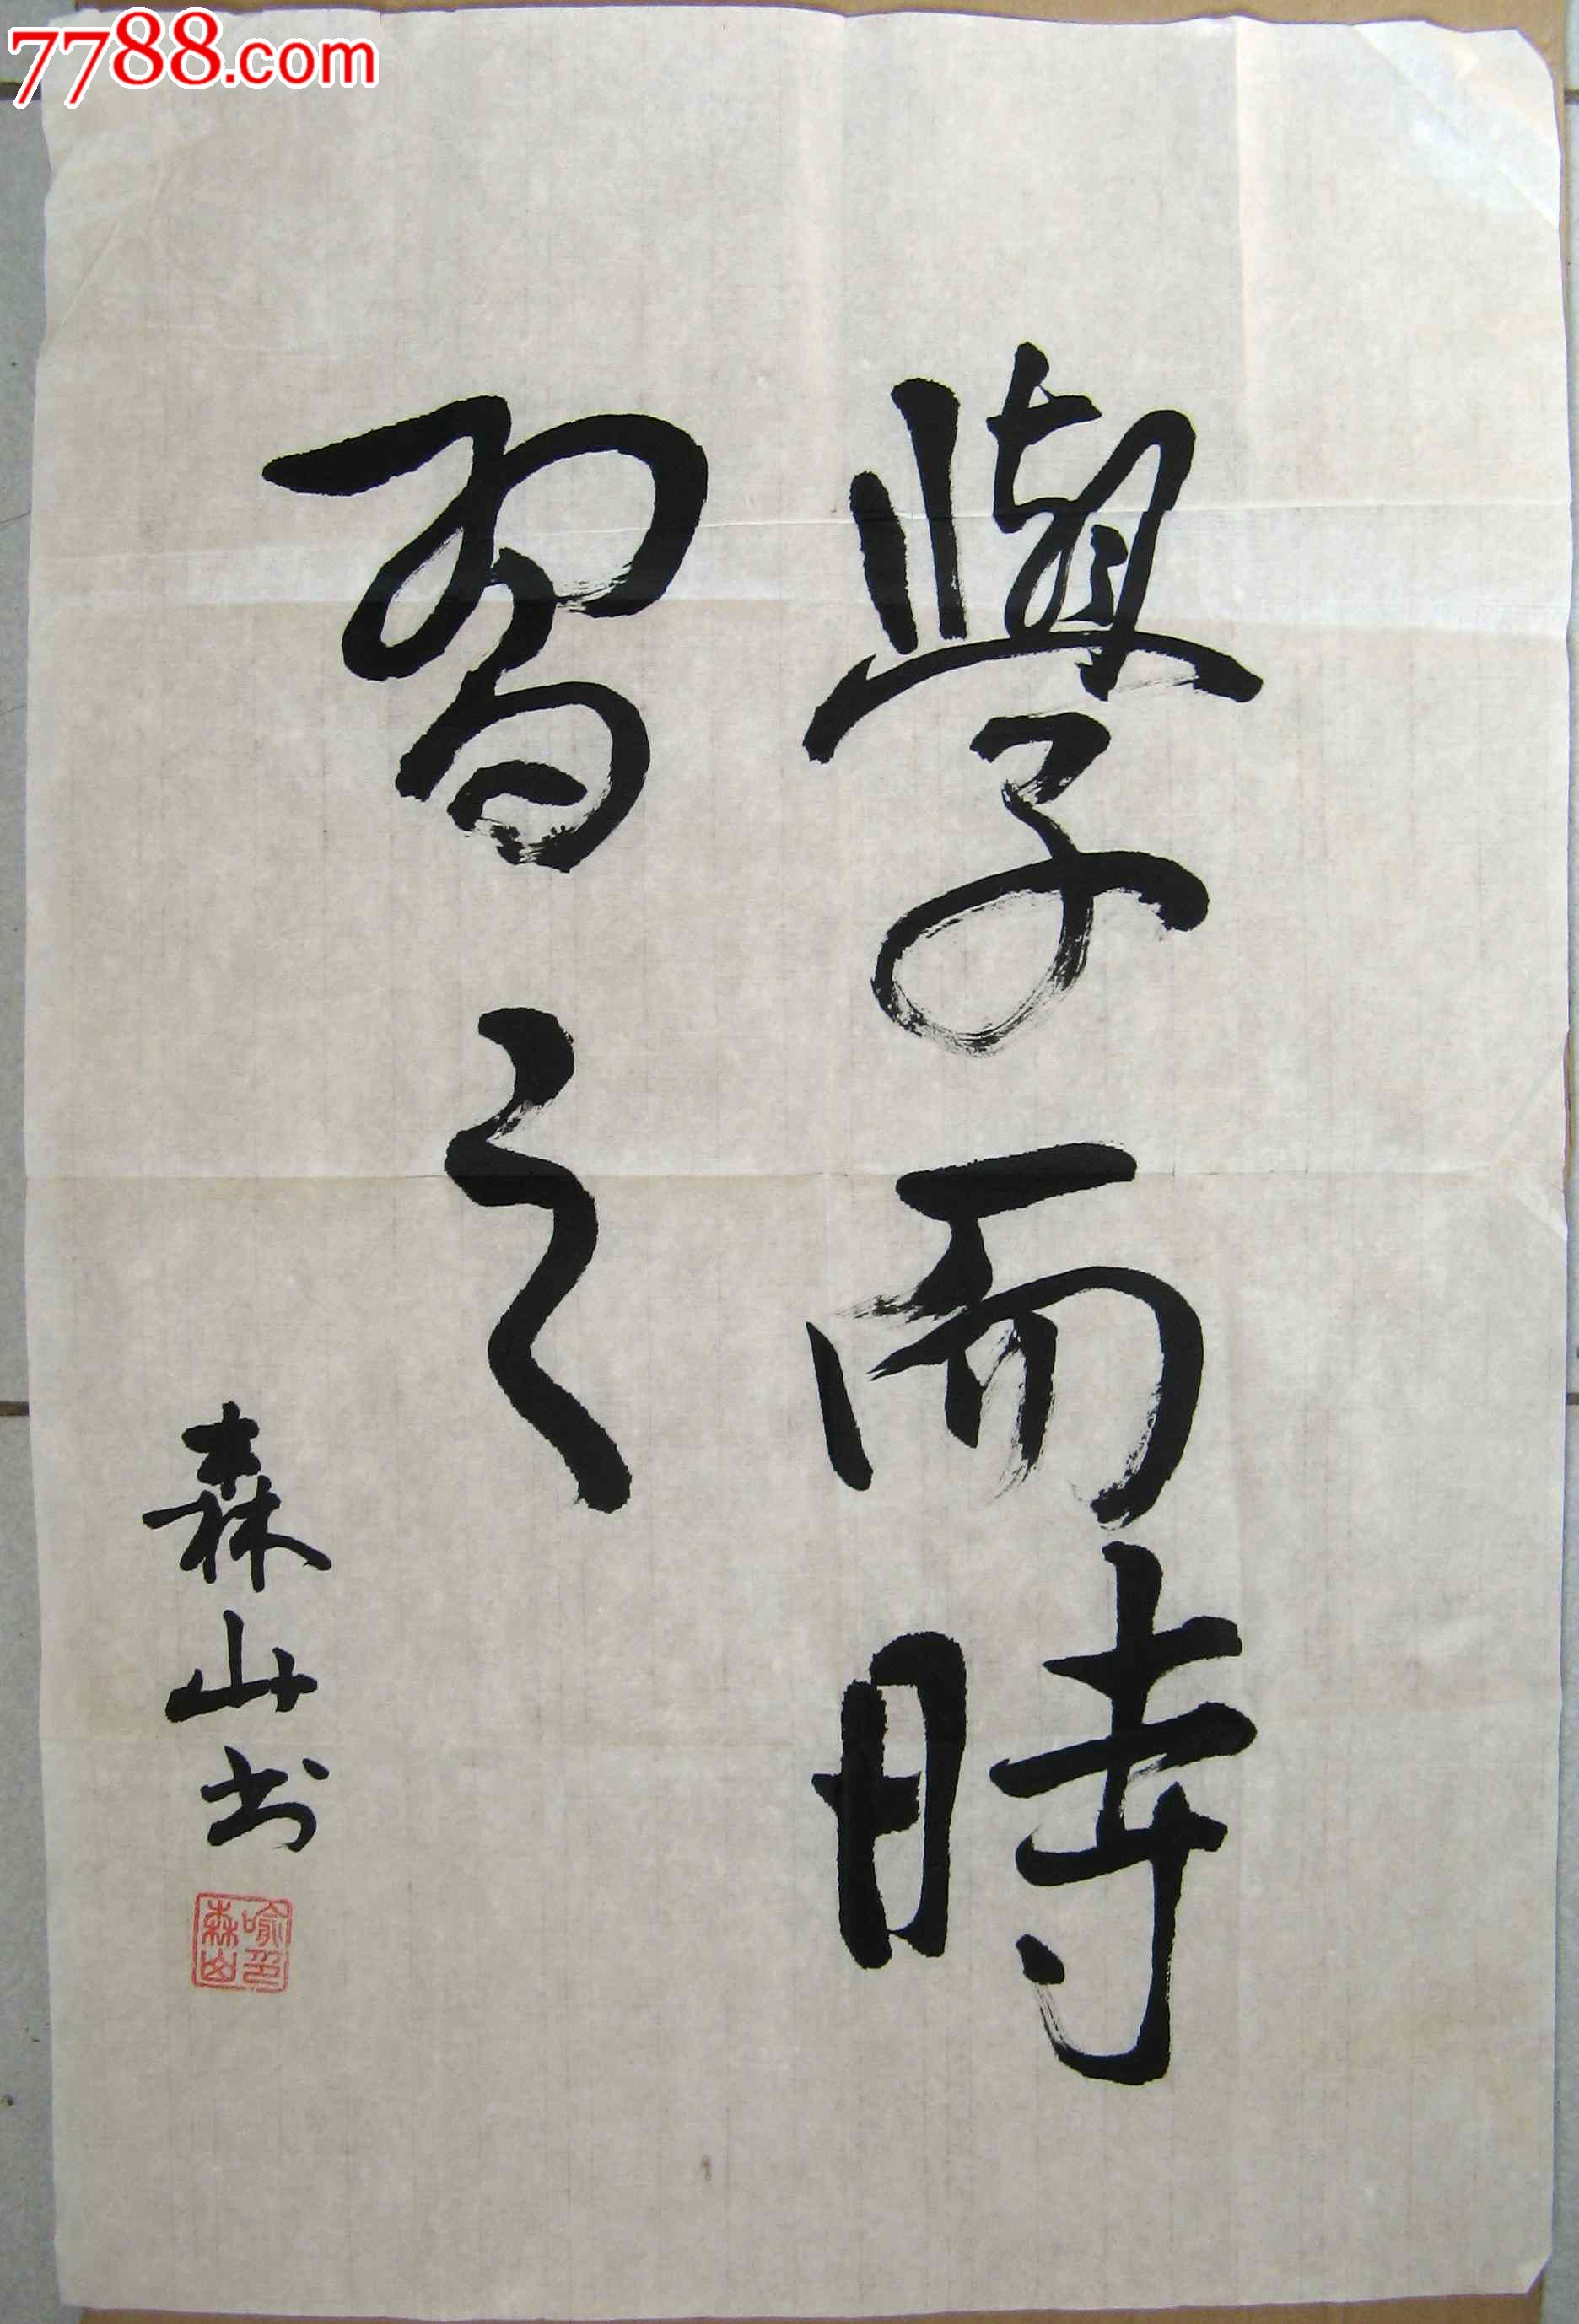 7788.com
學而時
習之
森山书
喻印
森山